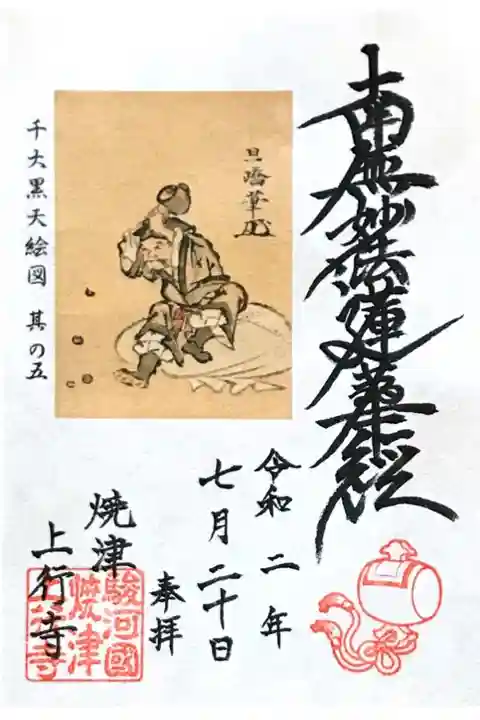 南無妙法蓮華経
旦嶺筆
千大黒天絵図 其の五
令和二年
七月二十日
奉拝
焼津
上行寺
駿河國
焼津
上行寺